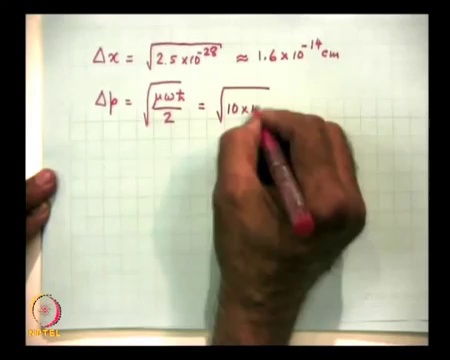 Δx = √(2.5×10⁻²⁸) ≈ 1.6×10⁻¹⁴ cm
Δp = √(μωħ/2) = √(10×1
NPTEL